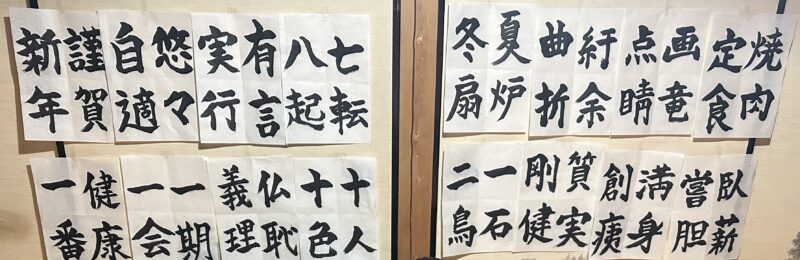 焼肉定食
画竜点睛
紆余曲折
夏炉冬扇
七転八起
有言実行
悠々自適
謹賀新年
臥薪嘗胆
満身創痍
質実剛健
一石二鳥
十人十色
仏恥義理
一期一会
健康一番